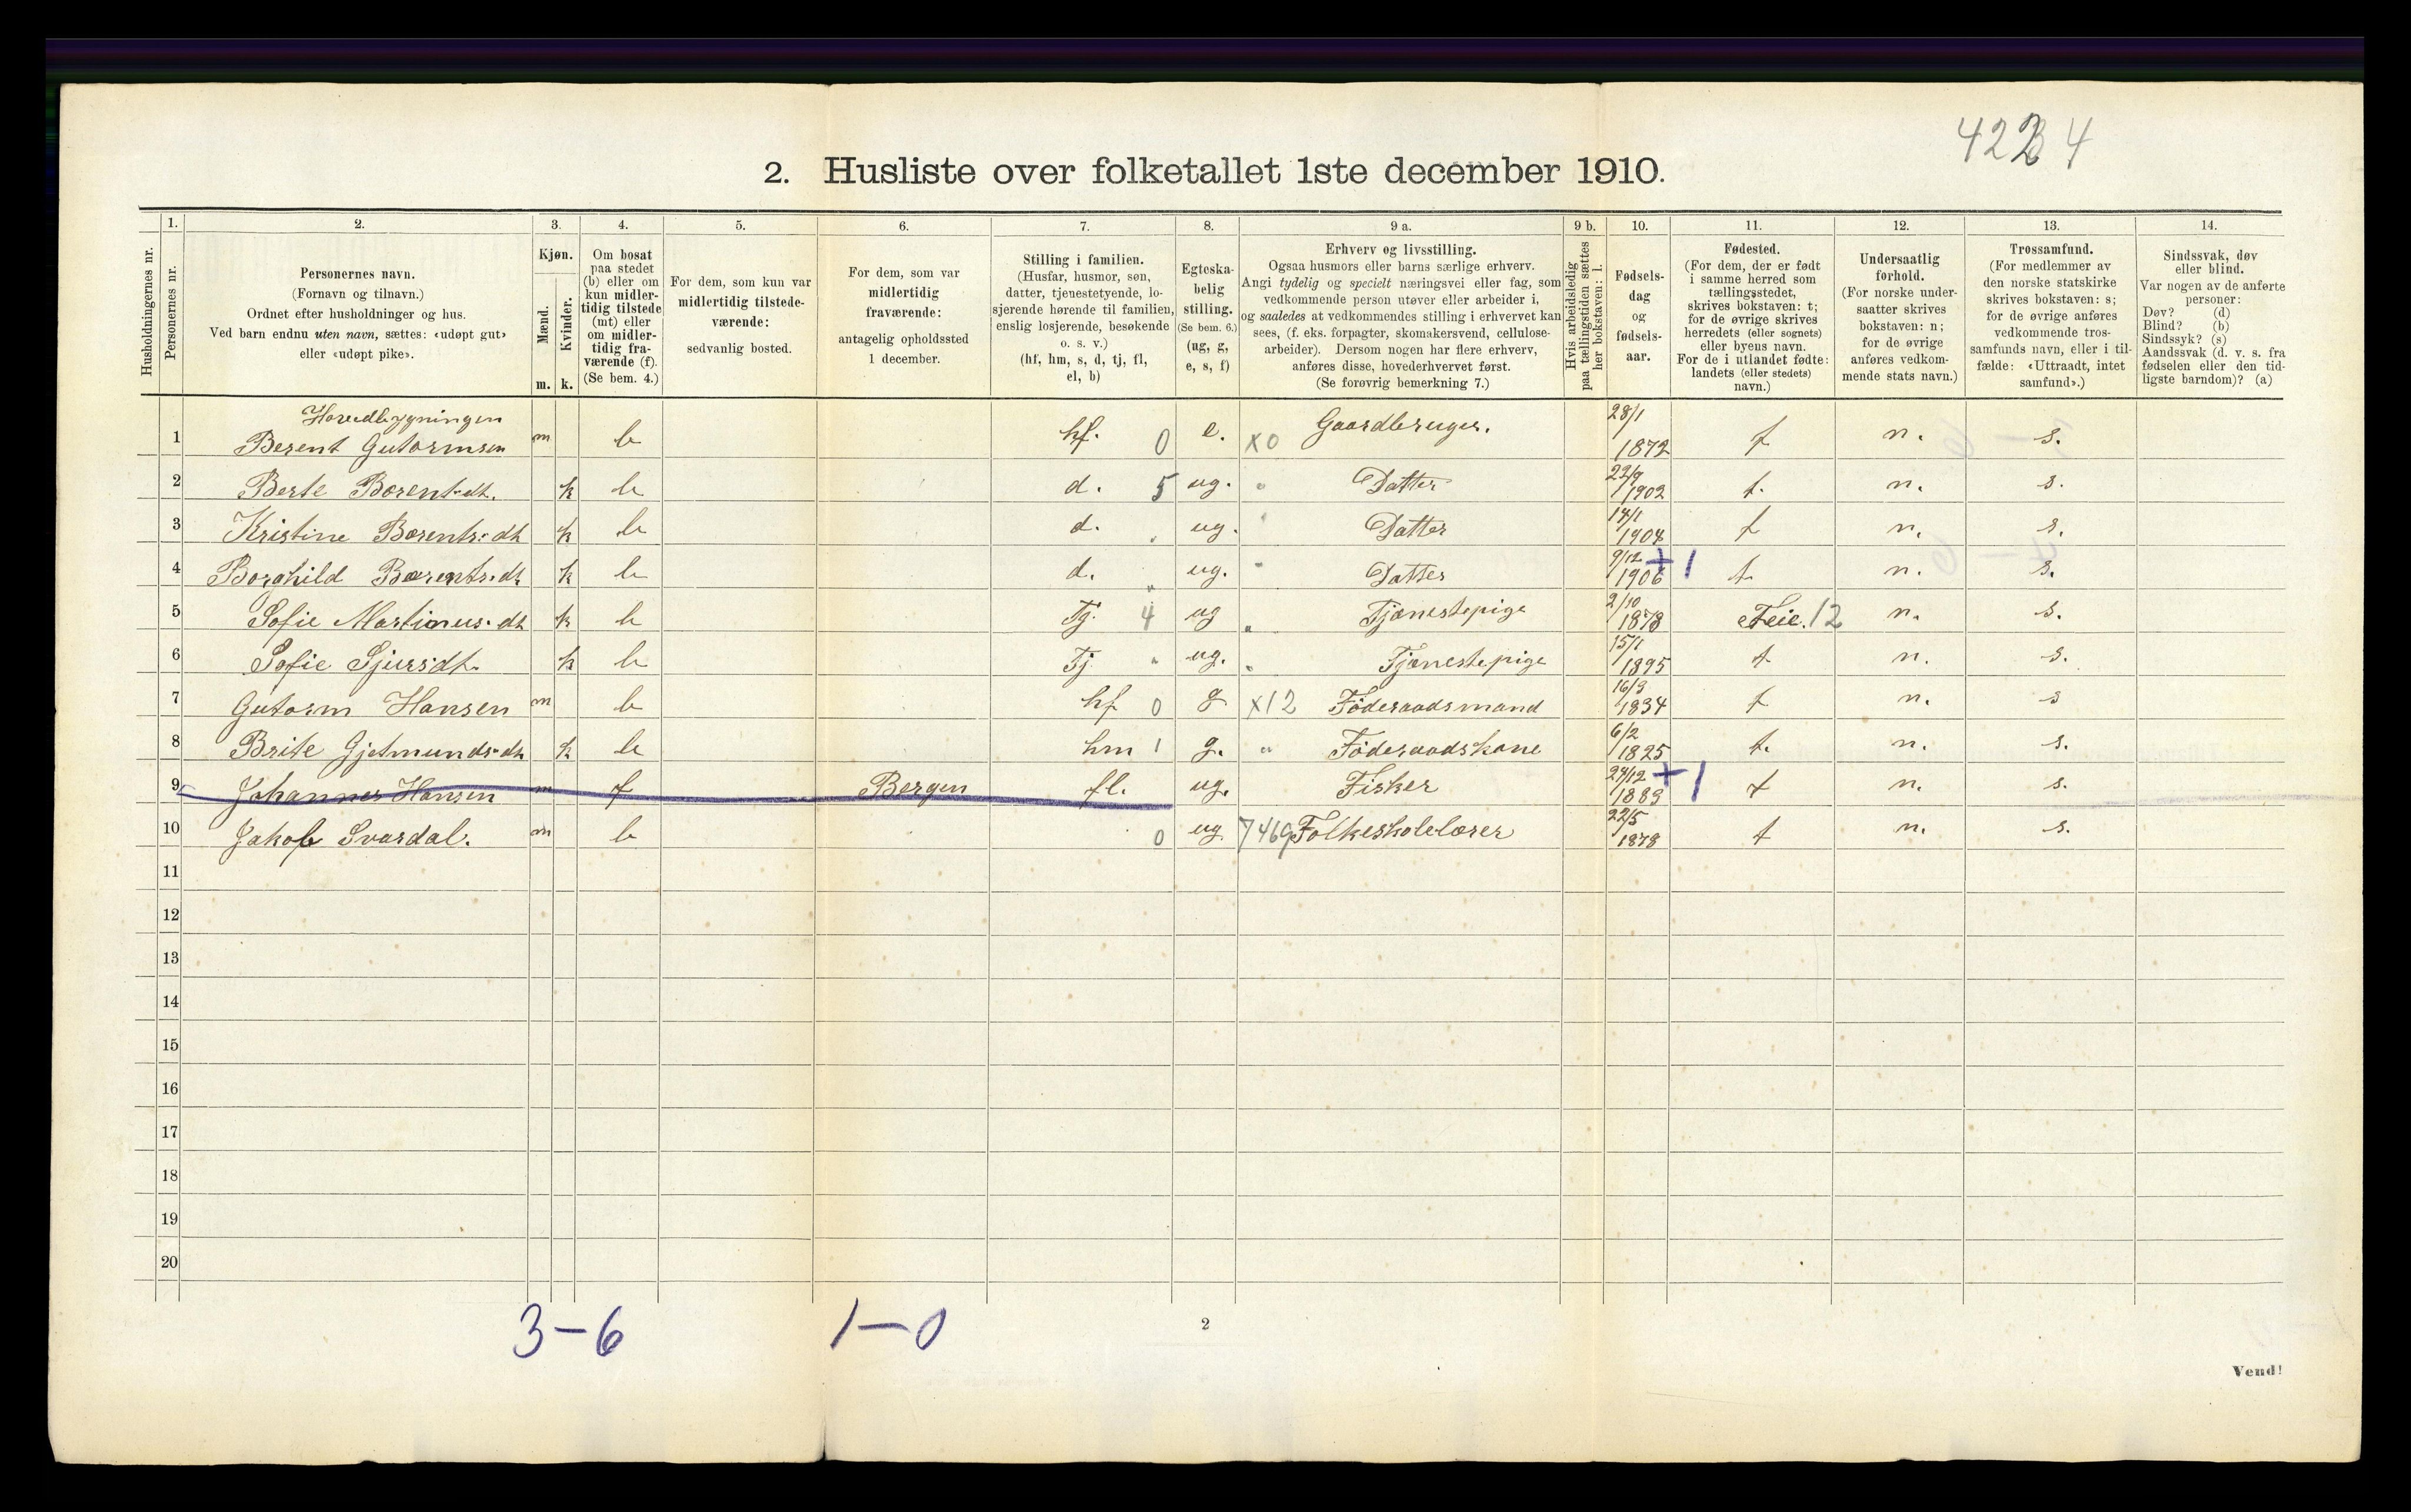 4224
2. Husliste over folketallet 1ste december 1910.
Husholdningernes nr.
1.
Personernes nr.
2.
Personernes navn.
(Fornavn og tilnavn.)
Ordnet efter husholdninger og hus.
Ved barn endnu uten navn, sættes: «udøpt gut»
eller «udøpt pike».
3.
Kjøn.
Mænd.
Kvinder.
m. k.
4.
Om bosat
paa stedet
(b) eller om
kun midler-
tidig tilstede
(mt) eller
om midler-
tidig fra-
værende (f).
(Se bem. 4.)
5.
For dem, som kun var
midlertidig tilstede-
værende:
sedvanlig bosted.
6.
For dem, som var
midlertidig
fraværende:
antagelig opholdssted
1 december.
7.
Stilling i familien.
(Husfar, husmor, søn,
datter, tjenestetyende, lo-
sjerende hørende til familien,
enslig losjerende, besøkende
o. s. v.)
(hf, hm, s, d, tj, fl,
el, b)
8.
Egteska-
belig
stilling.
(Se bem. 6.)
(ug, g,
e, s, f)
9 a.
Erhverv og livsstilling.
Ogsaa husmors eller barns særlige erhverv.
Angi tydelig og specielt næringsvei eller fag, som
vedkommende person utøver eller arbeider i,
og saaledes at vedkommendes stilling i erhvervet kan
sees, (f. eks. forpagter, skomakersvend, cellulose-
arbeider). Dersom nogen har flere erhverv,
anføres disse, hovederhvervet først.
(Se forøvrig bemerkning 7.)
9 b.
Hvis arbeidsledig
paa tællingstiden sættes
her bokstaven: l.
10.
Fødsels-
dag
og
fødsels-
aar.
11.
Fødested.
(For dem, der er født
i samme herred som
tællingsstedet,
skrives bokstaven: t;
for de øvrige skrives
herredets (eller sognets)
eller byens navn.
For de i utlandet fødte:
landets (eller stedets)
navn.)
12.
Undersaatlig
forhold.
(For norske under-
saatter skrives
bokstaven: n;
for de øvrige
anføres vedkom-
mende stats navn.)
13.
Trossamfund.
(For medlemmer av
den norske statskirke
skrives bokstaven: s;
for de øvrige anføres
vedkommende tros-
samfunds navn, eller i til-
fælde: «Uttraadt, intet
samfund».)
14.
Sindssvak, døv
eller blind.
Var nogen av de anførte
personer:
Døv? (d)
Blind? (b)
Sindssyk? (s)
Aandssvak (d. v. s. fra
fødselen eller den tid-
ligste barndom)? (a)
Hovedbygningen
1 Berent Gutormsen m b hf. 0 e. x0 Gaardbruger. 28/1 1872 t n. s.
2 Berte Berentsdt. k b d. 5 ug. " Datter 22/9 1902 t. n. s.
3 Kristine Berentsdt k b d. " ug. " Datter 14/1 1904 t n. s.
4 Borghild Berentsdt k b d. " ug. " Datter 9/12 1906 +1 t. n. s.
5 Sofie Martinusdt k b Tj. 4 ug " Tjenestepige 2/10 1878 Feie. 12 n. s.
6 Sofie Sjursdt. k b Tj " ug. " Tjenestepige 15/1 1895 t. n. s.
7 Gutorm Hansen m b hf 0 g x12 Føderaadsmand 16/3 1834 t n. s
8 Brite Gjetmundsdt k b hm 1 g. " Føderaadskone 6/2 1825 t. n. s.
9 Johannes Hansen m f Bergen fl. ug. Fisker 24/12 1889 +1 t n. s.
10 Jakob Svardal. m b 0 ug 7469 Folkeskolelærer 22/5 1878 t n. s.
11
12
13
14
15
16
17
18
19
20
3-6 1-0
2
Vend!